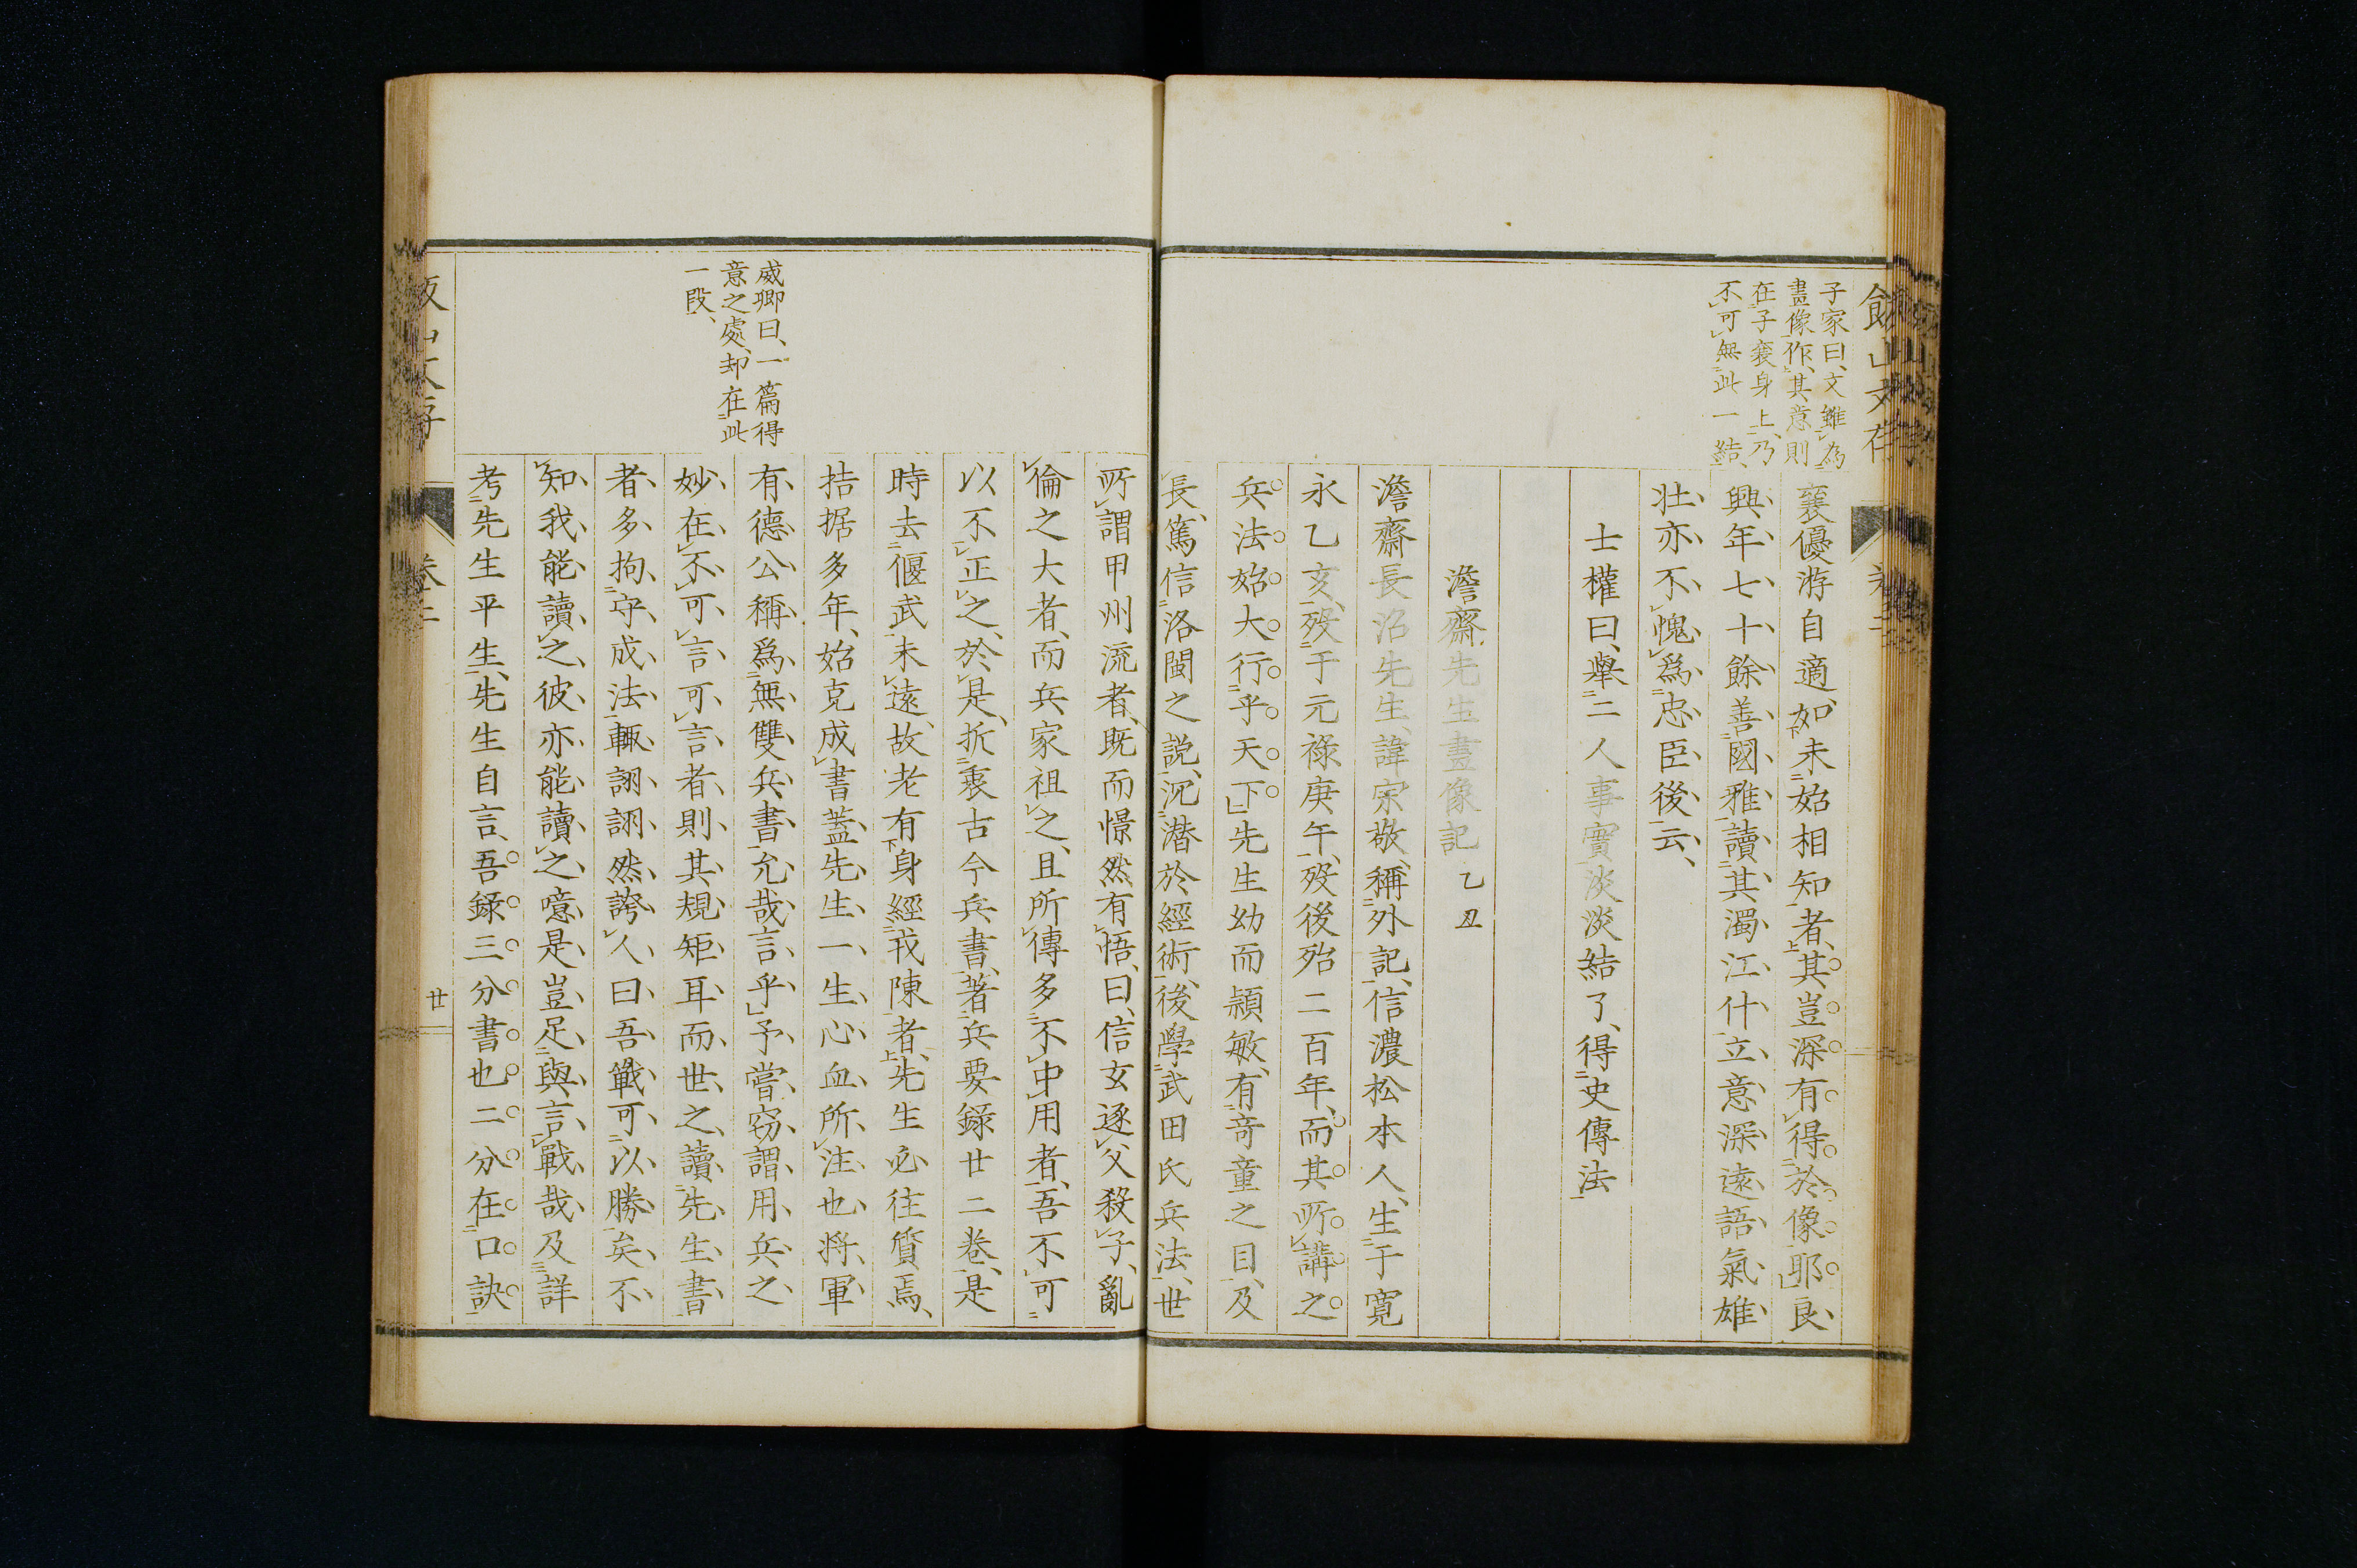 子家曰、文雖為
畫像作、其意則
在子襄身上、乃
不可無此一結、
襄優游自適、如未始相知者、其豈深有得於像耶、良
興年七十餘、善國雅、讀其濁江什、立意深遠、語氣雄
壯、亦不愧爲忠臣後云、
士權曰、舉二人事實淡淡結了、得史傳法
澹齋先生畫像記 乙丑
澹齋長沼先生、諱宗敬、稱外記、信濃松本人、生于寬
永乙亥、歿于元祿庚午、歿後殆二百年、而其所講之
兵法始大行乎天下、先生幼而頴敏、有奇童之目、及
長、篤信洛閩之説、沉潜於經術、後學武田氏兵法、世
所謂甲州流者、既而憬然有悟、曰、信玄逐父殺子、亂
倫之大者、而兵家祖之、且所傳多不中用者、吾不可
以不正之、於是、折衷古今兵書、著兵要錄廿二卷、是
時去偃武未遠、故老有身經戎陳者、先生必往質焉、
拮据多年、始克成書、蓋先生一生心血所注也、將軍
有德公稱爲無雙兵書、允哉言乎、予嘗窃謂、用兵之
妙、在不可言、可言者、則其規矩耳、而世之讀先生書
者、多拘守成法、輙詡詡然誇人曰、吾戰可以勝矣、不
知我能讀之、彼亦能讀之、噫是豈足與言戰哉、及詳
考先生平生、先生自言、吾錄三分書也、二分在口訣
威卿曰、一篇得
意之處、却在此
一段、
卷二
廿